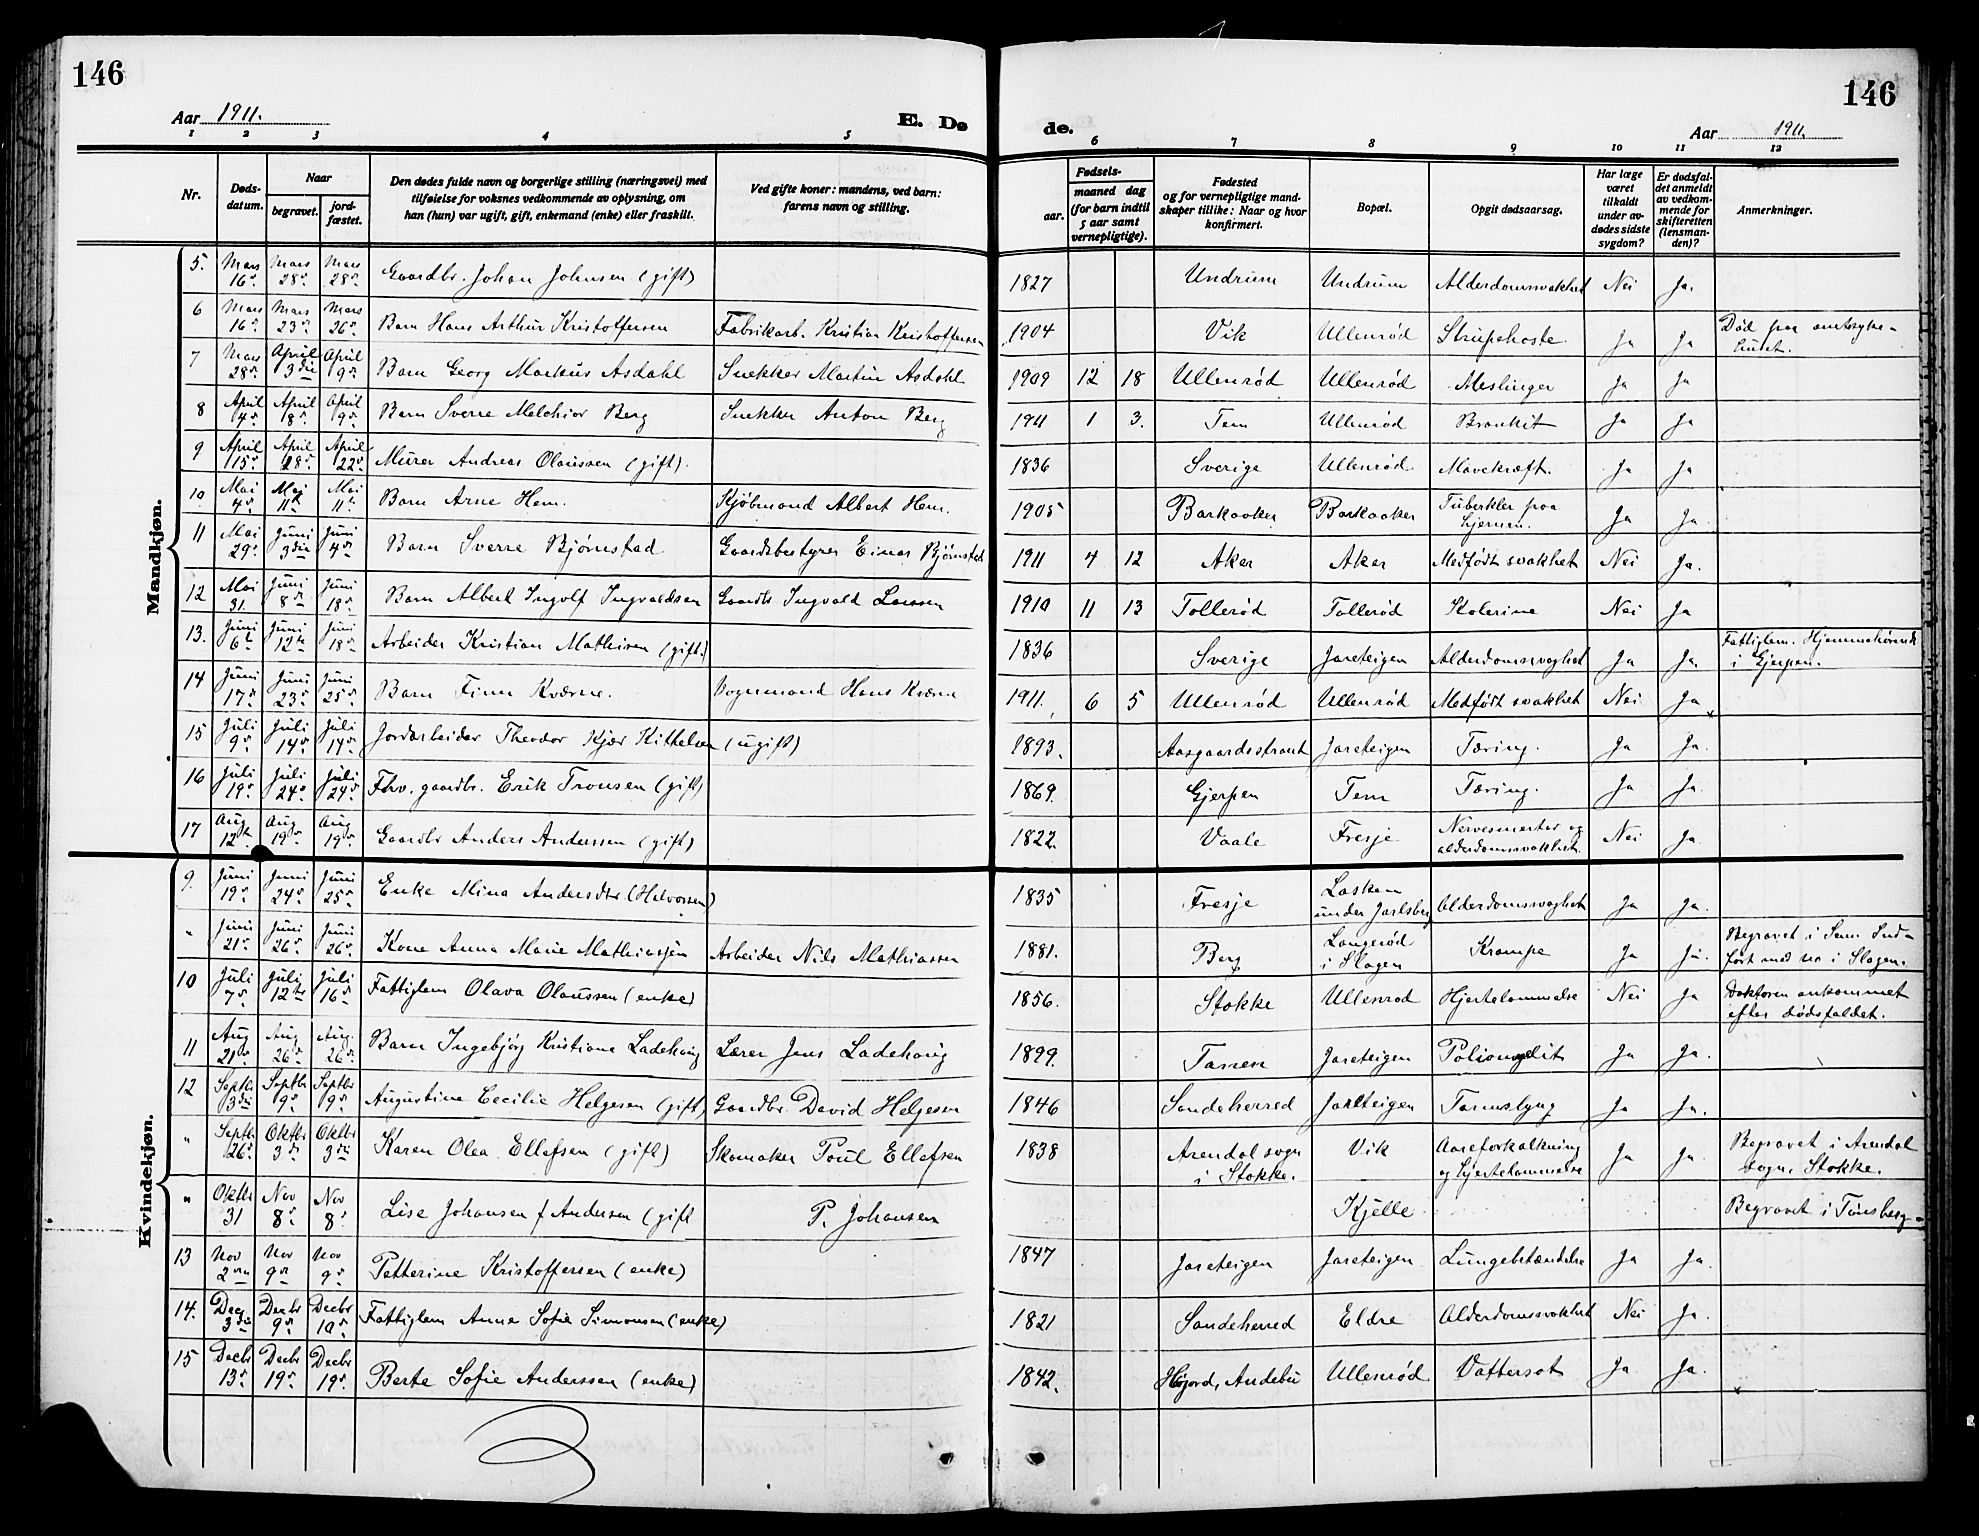 146
146
Aar 1911.
E. Dø
de.
Aar 1911.
1 2 3 4 5 6 7 8 9 10 11 12
Nr.
Døds-
datum.
Naar
begravet.
jord-
fæstet.
Den dødes fulde navn og borgerlige stilling (næringsvei) med
tilføielse for voksnes vedkommende av oplysning, om
han (hun) var ugift, gift, enkemand (enke) eller fraskilt.
Ved gifte koner: mandens, ved barn:
farens navn og stilling.
Fødsels-
aar.
maaned dag
(for barn indtil
5 aar samt
vernepligtige).
Fødested
og for vernepligtige mand-
skaper tillike: Naar og hvor
konfirmert.
Bopæl.
Opgit dødsaarsag.
Har læge
været
tilkaldt
under av-
dødes sidste
sygdom?
Er dødsfal-
det anmeldt
av vedkom-
mende for
skifteretten
(lensman-
den)?
Anmerkninger.
Mandkjøn.
5. Mars 16d. Mars 28d. Mars 28d. Gaardbr. Johan Johnsen (gift) 1827 Undrum Undrum Alderdomssvakhet Nei Ja.
6 Mars 16d. Mars 23d. Mars 26d. Barn Hans Arthur Kristoffersen Fabrikarb. Kristian Kristoffersen 1904 Vik Ullenrød Strupehoste. Ja Ja Død paa amtssyke-
huset.
7 Mars 28d. April 3die April 9d. Barn Georg Markus Asdahl Snekker Martin Asdahl 1909 12 18 Ullenrød Ullenrød Meslinger Ja Ja
8 April 4d. April 18d. April 9d. Barn Sverre Melchior Berg Snekker Anton Berg 1911 1 3. Tem Ullenrød Bronkit Ja Ja
9 April 15d. April 18d. April 22d. Murer Andreas Olaussen (gift). 1836 Sverige Ullenrød Mavekræft. Ja Ja
10. Mai 4d. Mai 11te Mai 11te Barn Arne Hem. Kjøbmand Albert Hem. 1905 Barkaaker Barkaaker Tuberkler paa
hjernen. Ja Ja.
11 Mai 29d. Juni 3die Juni 4d. Barn Sverre Bjørnstad Gaardsbestyrer Einar Bjørnstad 1911 4 12 Aker Aker Medfødt svakhet Nei Ja.
12 Mai 31. Juni 8d. Juni 18d. Barn Albert Ingolf Ingvaldsen Gaardb. Ingvald Larssen 1910 11 13 Tollerød Tollerød Kolerine Nei Ja
13. Juni 6te Juni 12te Juni 18d. Arbeider Kristian Mathisen (gift.) 1836 Sverige Jareteigen Alderdomssvaghet Ja Ja. Fattiglem. Hjemmehørende
i Gjerpen.
14 Juni 17d. Juni 23d. Juni 25d. Barn Finn Kværne. Vognmand Hans Kværne 1911. 6 5 Ullenrød Ullenrød Medfødt svakhet Nei Ja
15 Juli 9d. Juli 14d. Juli 14d. Jordarbeider Theodor Kjær Kittelsen (ugift) 1893. Aasgaardsstrand Jareteigen Tæring. Ja Ja.
16 Juli 19d. Juli 24d. Juli 24d. Fhv. gaardbr. Erik Tronsen (gift) 1869. Gjerpen Tem Tæring. Ja Ja.
17 Aug 12te Aug 19d. Aug 19d. Gaardbr Anders Anderssen (gift) 1822. Vaale Fresje Nervesmerter og
alderdomssvakhet. Nei Ja.
Kvindekjøn.
9. Juni 19d. Juni 24d. Juni 25d. Enke Mina Andersdtr (Halvorsen) 1835 Fresje Løsken
under Jarlsberg Alderdomssvaghet Ja Ja.
" Juni 21d. Juni 26d. Juni 26d. Kone Anna Marie Mathiassen Arbeider Nils Mathiassen 1881. Berg Langerød
i Slagen Krampe Ja Ja. Begravet i Sem. Ind-
ført med no i Slagen.
10 Juli 7d. Juli 12te Juli 16d. Fattiglem Olava Olaussen (enke) 1856. Stokke Ullenrød Hjertelammelse Nei Ja Doktoren ankommet
efter dødsfaldet.
11 Aug 21d. Aug 26d. Aug. 26d. Barn Ingebjørg Kristiane Ladehaug Lærer Jens Ladehaug 1899. Tanem Jareteigen Poliomyelit Ja Ja.
12 Septbr 3die Septbr 9d. Septbr 9d. Augustine Cecilie Helgesen (gift) Gaardbr. David Helgesen 1846 Sandeherred Jarlteigen Tarmslyng Ja Ja.
" Septbr 26d. Oktbr 3die Oktbr 3die Karen Olea Ellefsen (gift) Skomaker Poul Ellefsen 1838 Arendal sogn
i Stokke. Vik Aareforkalkning
og hjertelammelse Ja Ja. Begravet i Arendal
sogn. Stokke.
" Oktbr 31 Nov 8d. Nov 8d. Lise Johansen f Andersen (gift P. Johansen Kjelle Begravet i Tønsberg.
13 Nov 2den Nov 9d. Nov 9d. Petterine Kristoffersen (enke) 1847 Jareteigen Jareteigen Lungebetændelse Ja Ja.
14. Decbr 3die Decbr 9d. Decbr 10d. Fattiglem Anne Sofie Simonsen (enke) 1821 Sandeherred Eldre Alderdomssvakhet Nei Ja.
15 Decbr 13d. Decbr 19d. Decbr 19d. Berte Sofie Anderssen (enke) 1842. Højord, Andebu Ullenrød Vattersot Ja Ja.